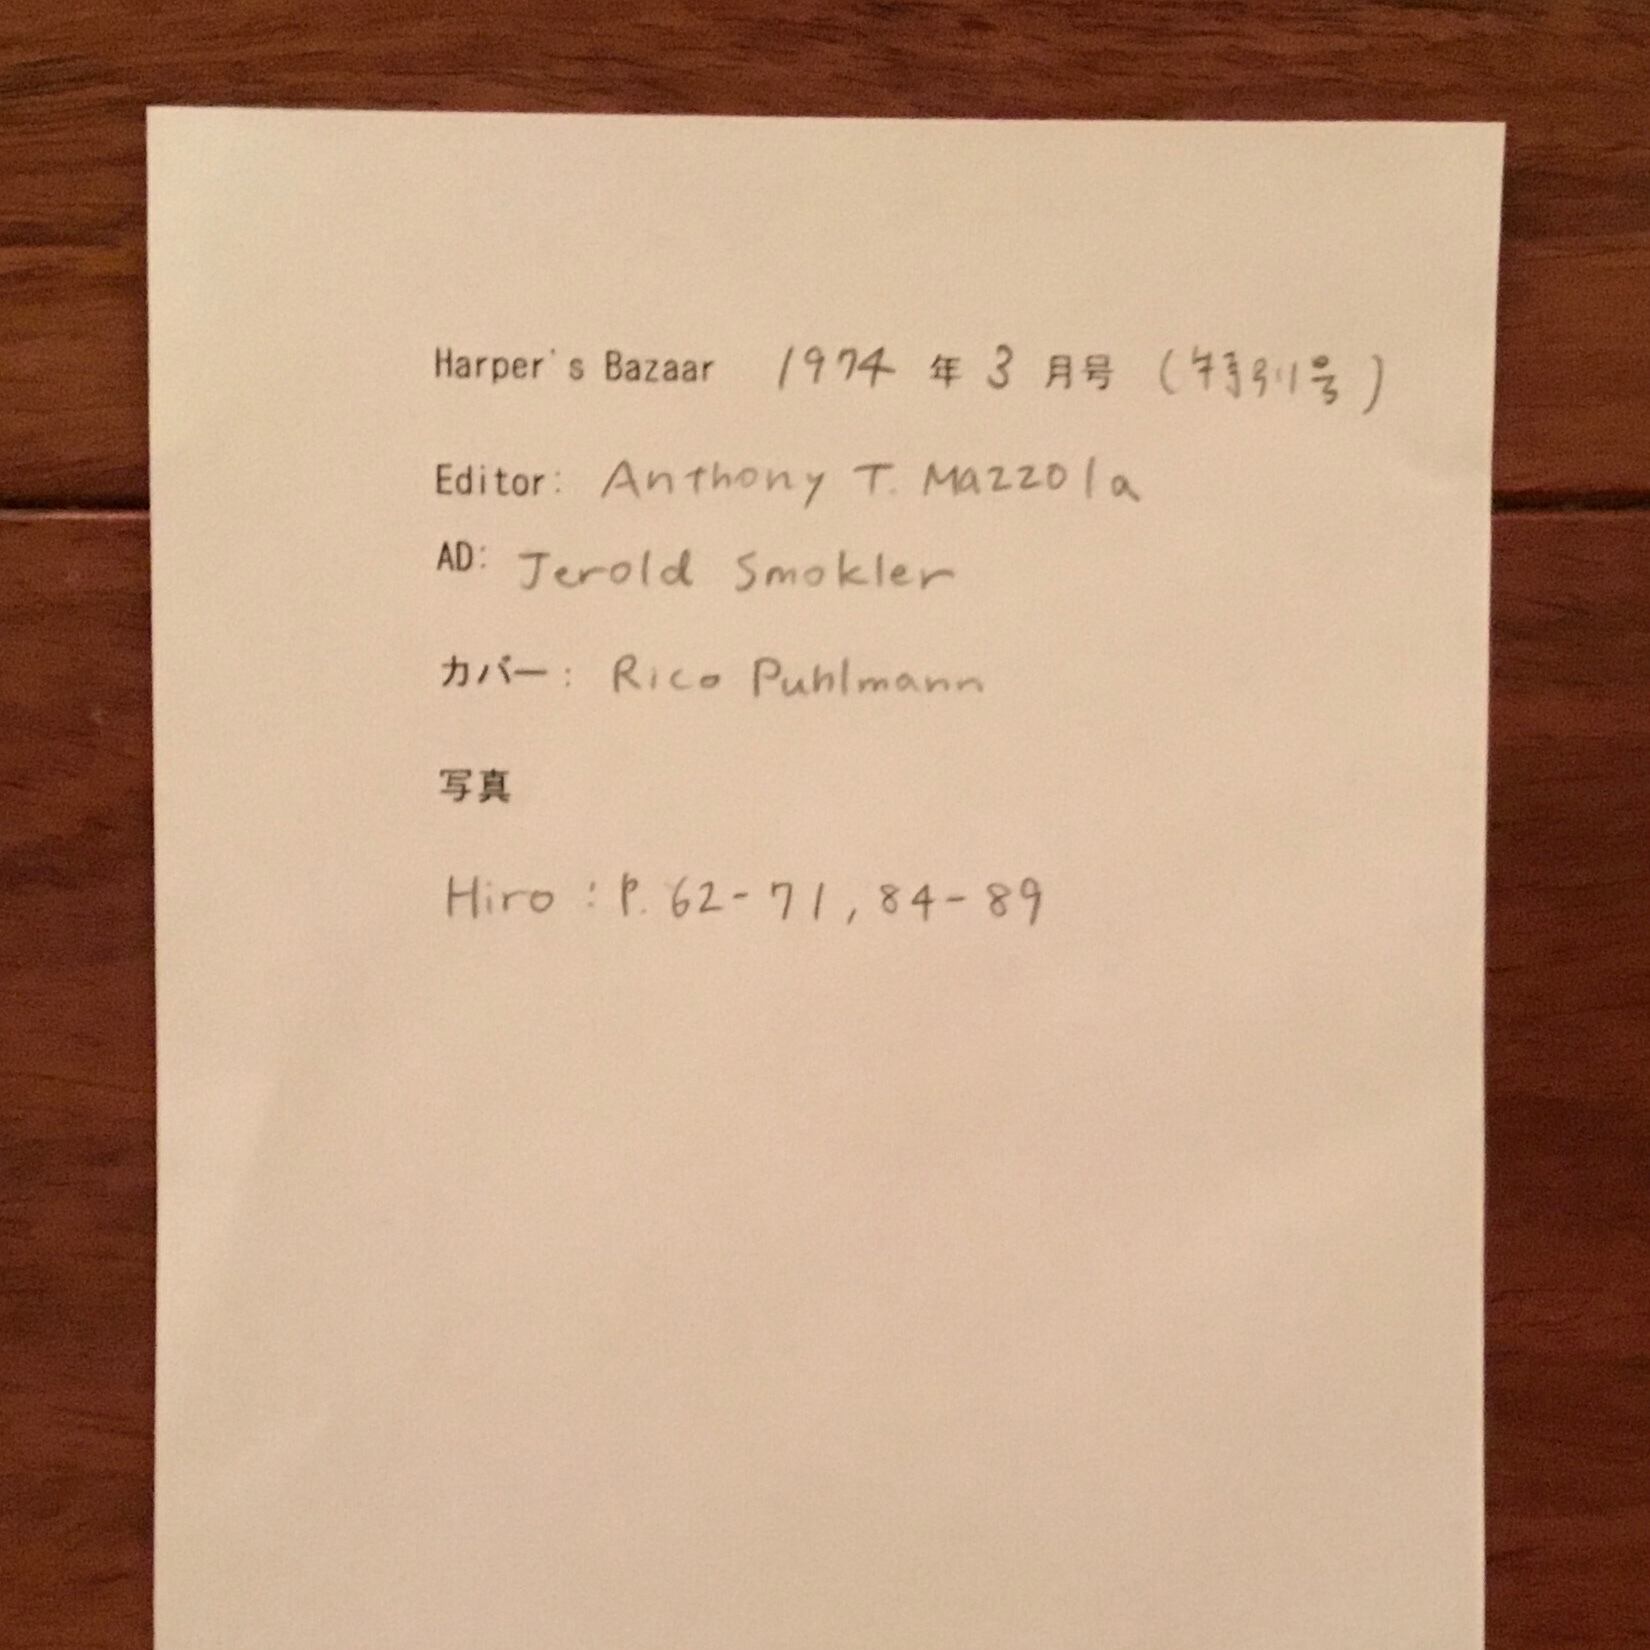 Harper's Bazaar 1974 年 3 月号 (特別号)
Editor: Anthony T. Mazzola
AD: Jerold Smokler
カバー: Rico Puhlmann
写真
Hiro : P. 62-71, 84-89